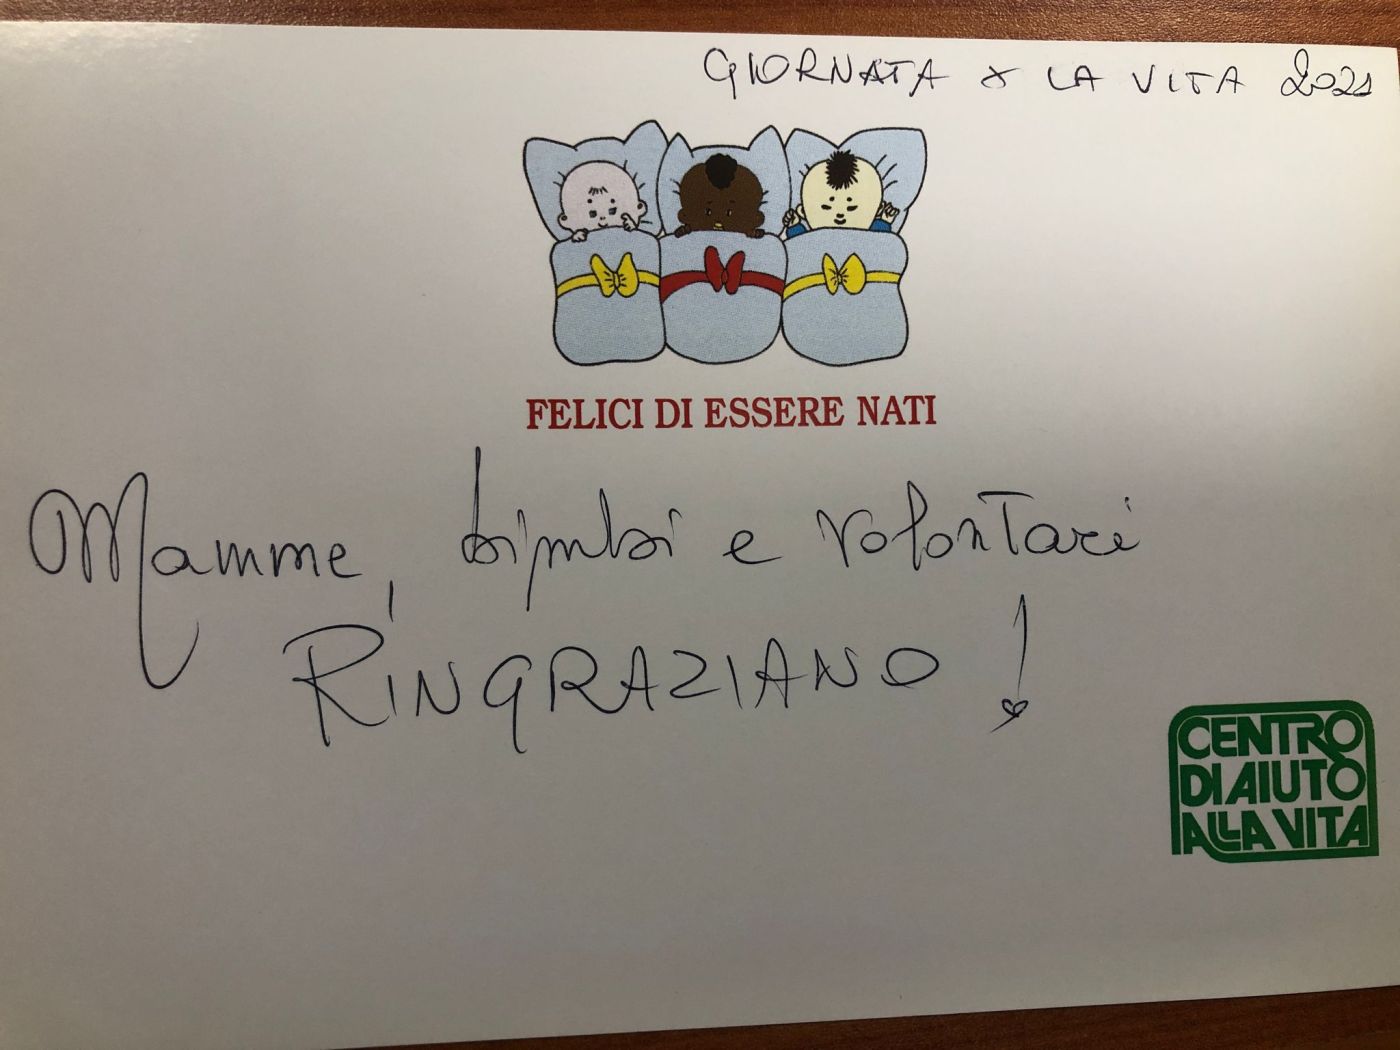 GIORNATA x LA VITA 2021
FELICI DI ESSERE NATI
Mamme, bimbi e volontari
RINGRAZIANO!
CENTRO
DI AIUTO
ALLA VITA